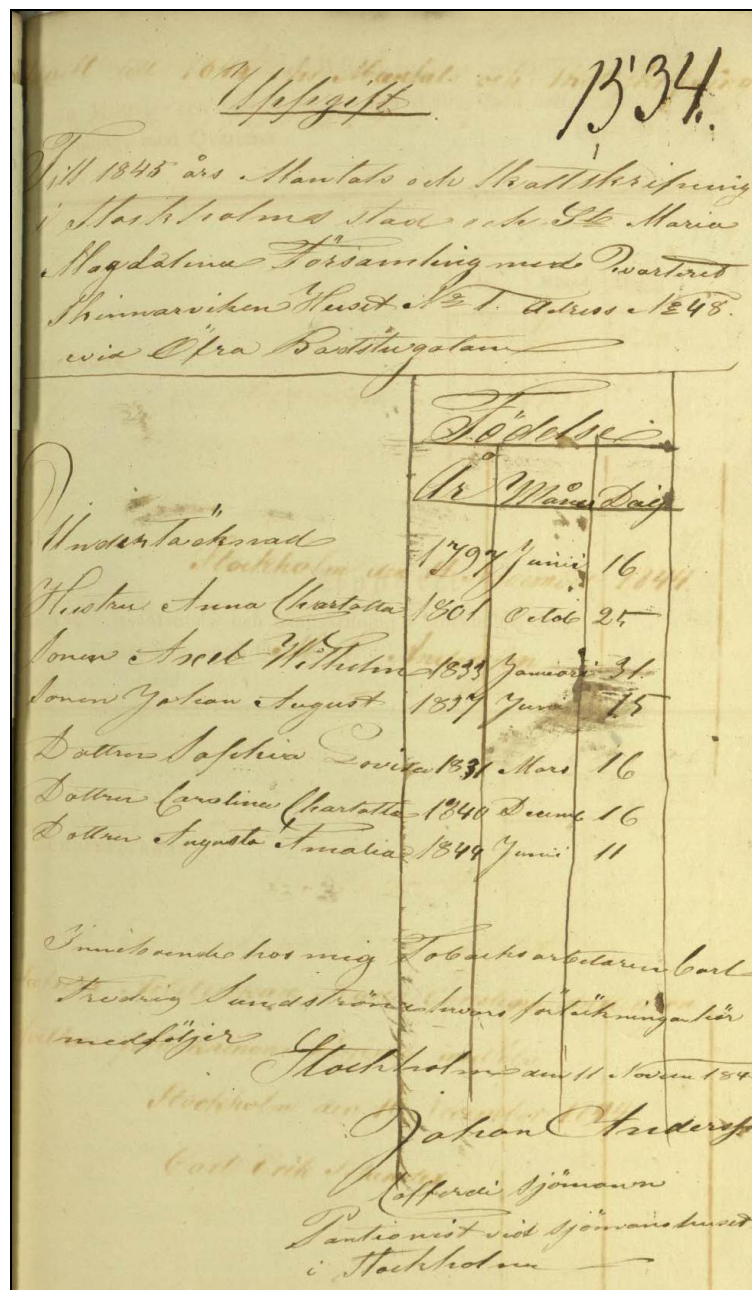 Uppgift
1534.
Till 1845 års Mantals och Skattskrifning
i Stockholms stad och S:ta Maria
Magdalena Församling med Qvarteret
Skinnarviken Huset N:o 1. Adress N:o 48.
vid Öfra Badstugatan
Födelse
År Månad Dag
Undertäcknad 1797 Junii 16
Hustru Anna Charlotta 1801 Octob 25
Sonen Axel Wilhelm 1833 Januari 31
Sonen Johan August 1837 Juni 15
Dottren Sophia Lovisa 1831 Mars 16
Dottren Carolina Charlotta 1840 Decemb 16
Dottren Augusta Amalia 1844 Junii 11
Inneboende hos mig Tobacksarbetaren Carl
Fredrig Sundström hvars förtäkningar här
medföljer
Stockholm den 11 Novem 184
Johan Anderss
Cofferdi sjömann
Pantionist vid sjömanshuset
i Stockholm